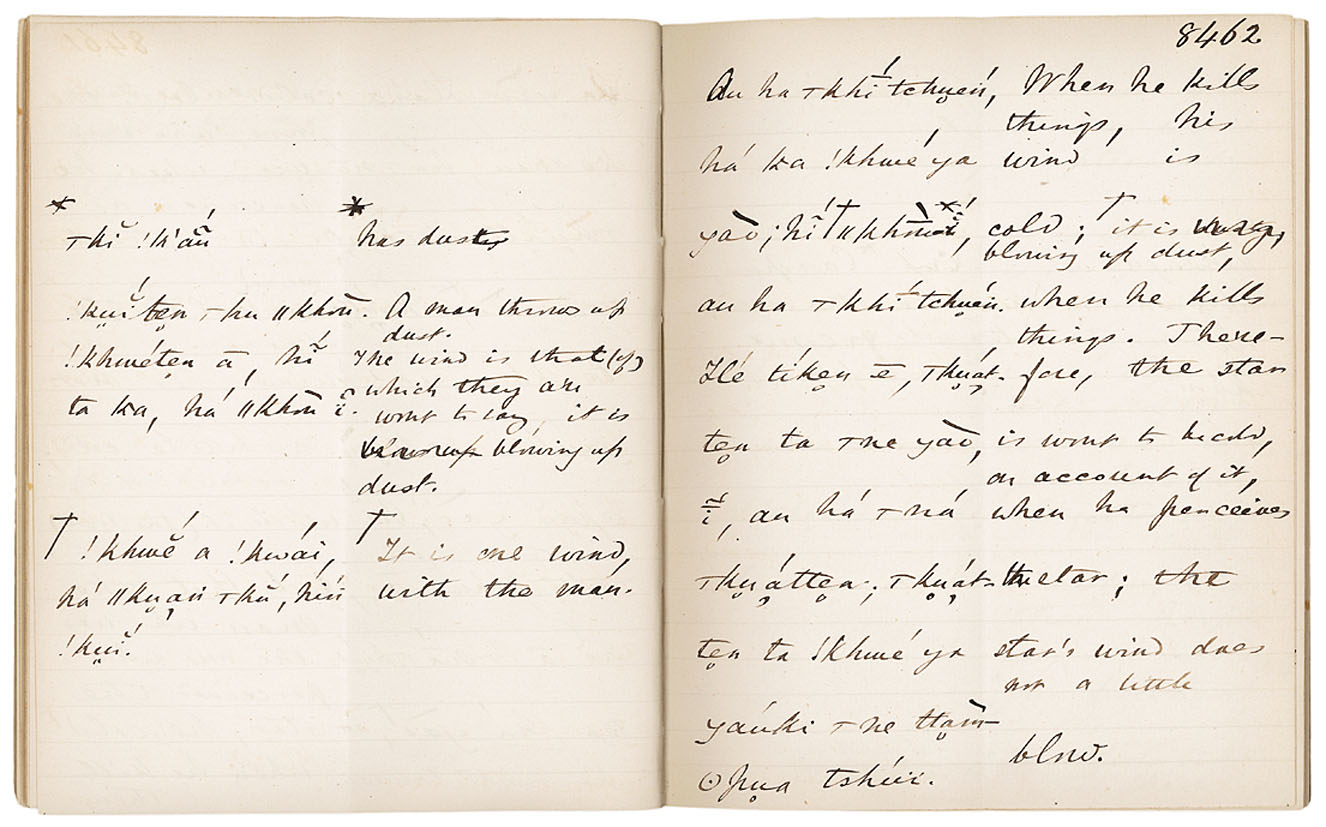 tkĭ !k'ań̆ has dust
!kṷi̯ tẹn thu ǁkhōū. A man throws up
dust.
!khwétẹn ā, hĭ́ The wind is that (of)
which they are
ta ka, há ǁkhōū ĩ. wont to say, it is
blowing up
dust.
† !khwĕ́ a !kwái, † It is one wind,
há ǁkṷań tkŭ́, hiń with the man.
!kṷĭ́.
8462
Au ha tkhí tchṷeń, When he kills
things, his
há ka !khwé ya wind is
yaō; hĭ́ † cold; † it is
blowing up dust,
au ha tkhí tchṷeń. when he kills
things. There-
Hé tíkẹn ē, tkṷát- fore, the star
tẹn ta tne yaō, is wont to be cold,
on account of it,
ĩ, au há tná when he perceives
tkṷáttẹn; tkṷát- the star; the
tẹn ta !khwé ya star's wind does
not a little
yaúki tne ttam̀-
blow.
ʘpṷa tshúi.